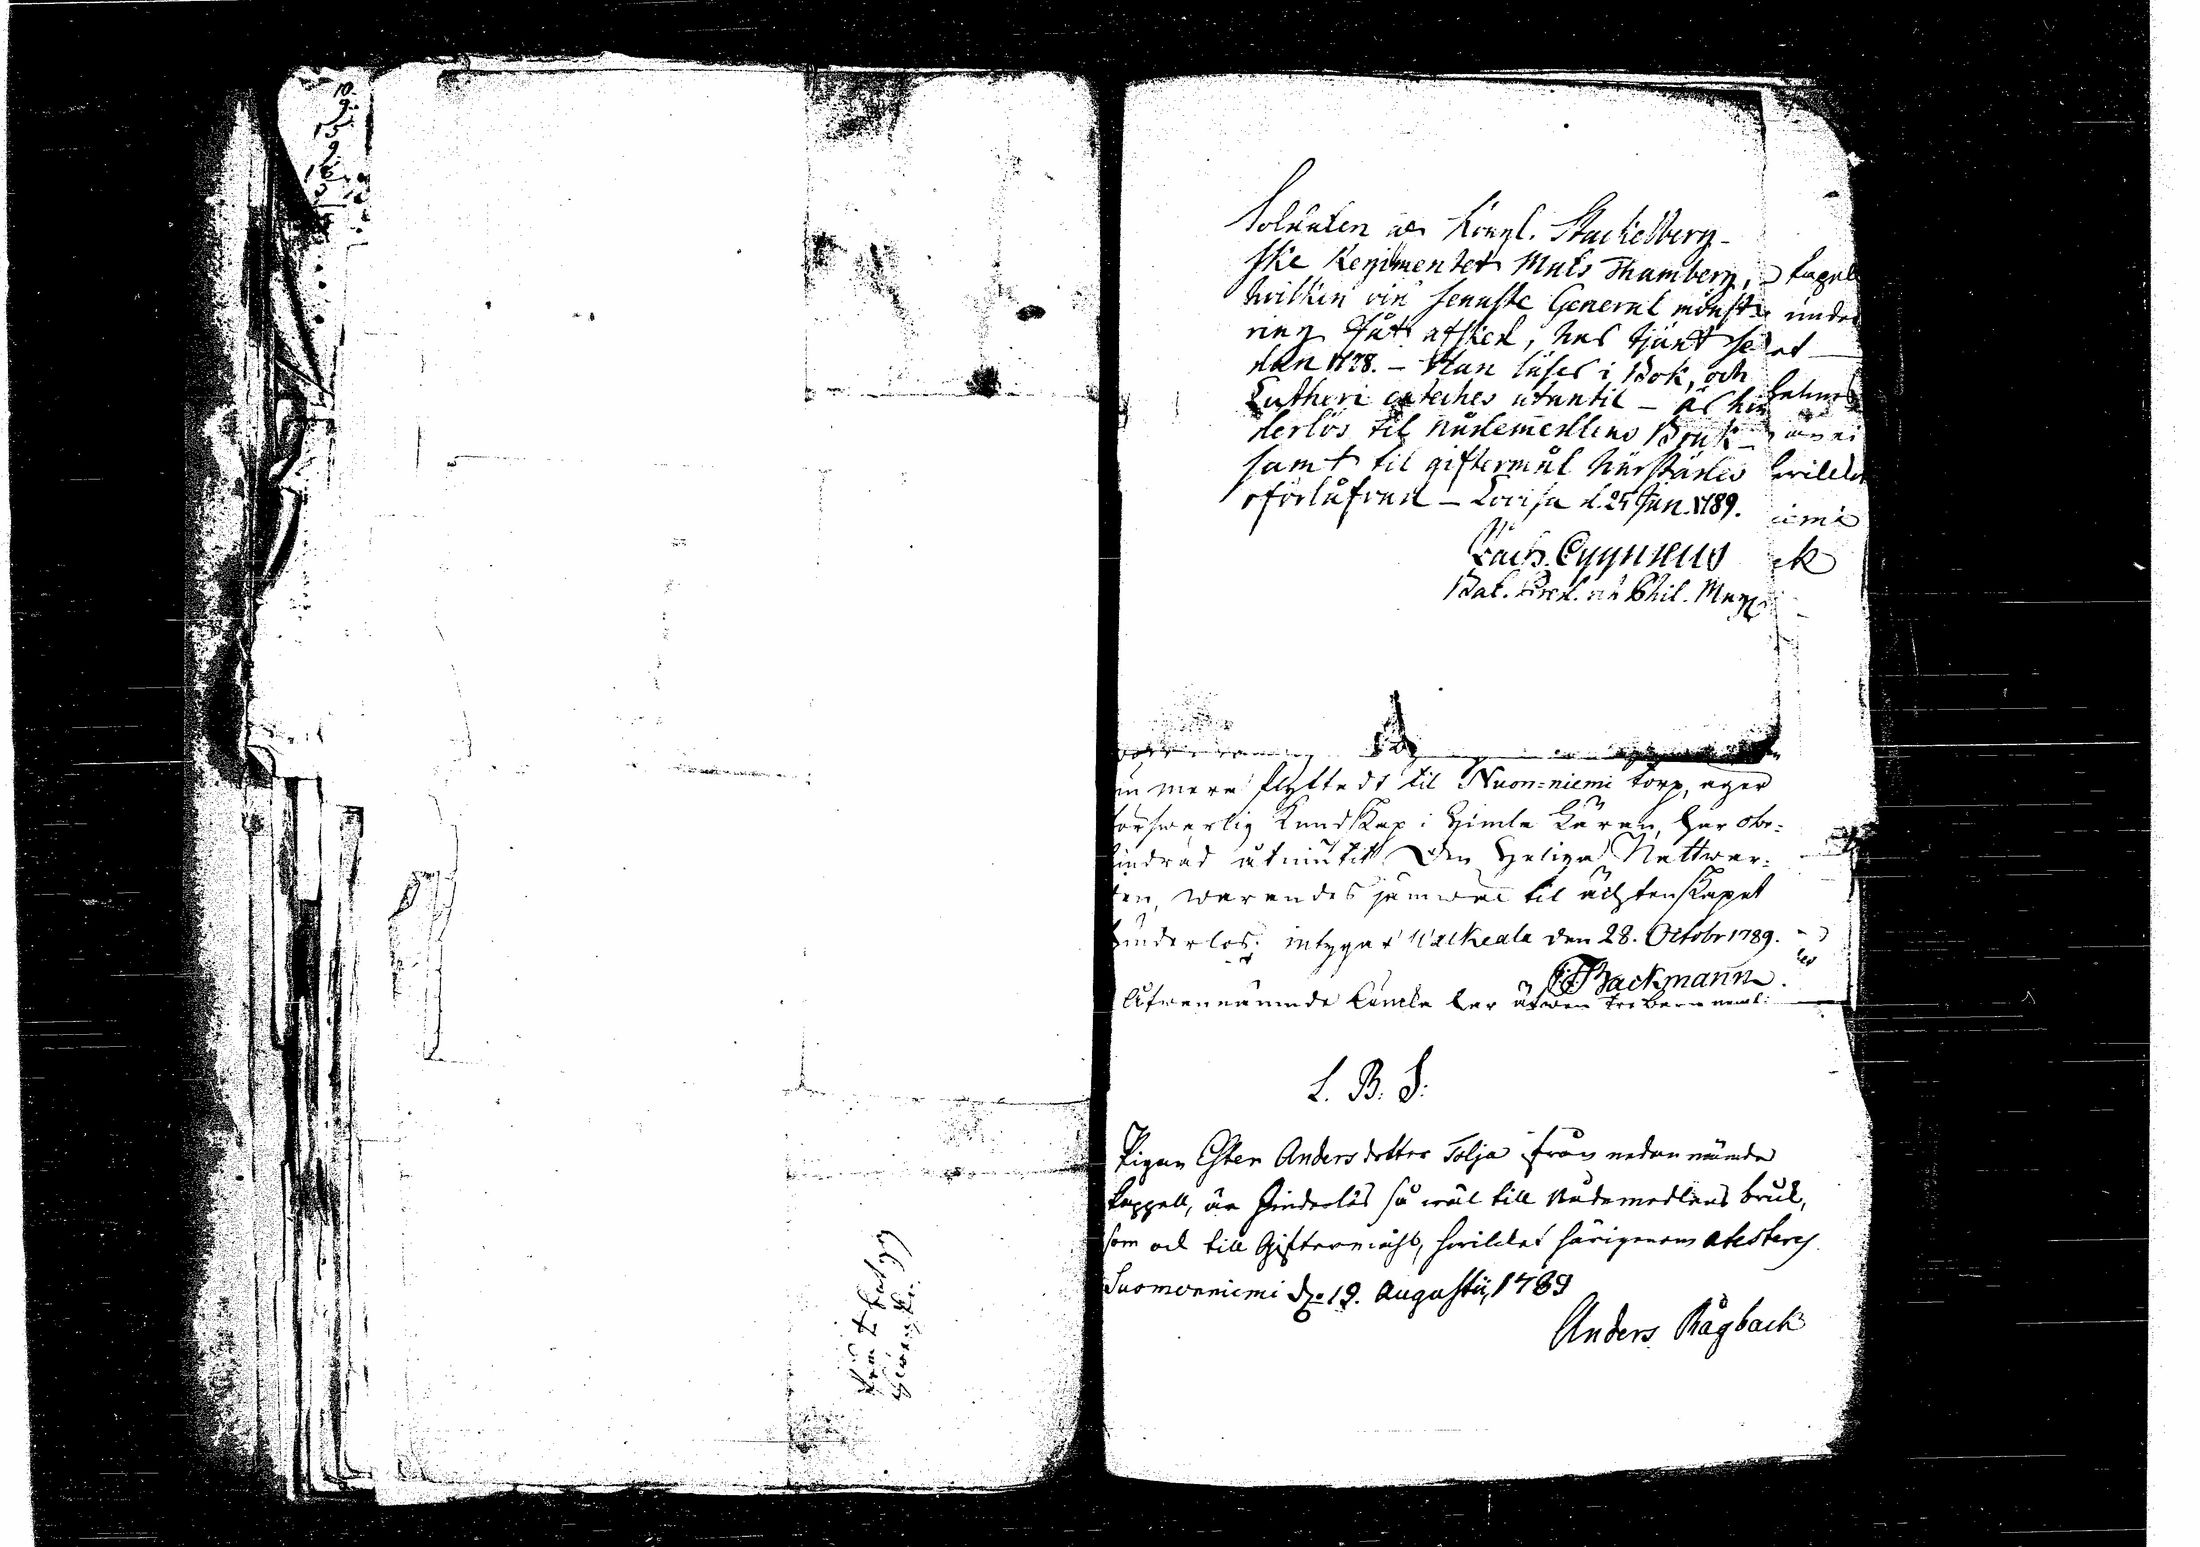 10.
9.
15
9
16
Soldaten af Kongl. Stackelberg-
ske Regimentet Mats Thamberg,
hvilken vid senaste General mönst-
ring fåt afsked, har tjänt se-
dan 1778. – Han läser i Bok, och
Lutheri cateches utantil – är hin-
derlös til nådemedlens Bruk
samt til giftermål härstädes
oförlåfvad – Lovisa d. 25 Jun. 1789.
Zach. Cygnæus
Bat. Pred. och Phil. Mag.
kapell
under
at
hvilket
iemi
ck
nu mera flyttadt til Nuon-niemi torp, eger
försvarlig Kundskap i Himla Läran, har obe-
hindrad åtniutit Den Heliga Nattwar-
den, warandes jämwäl til ächtenskapet
hinderlös; intygar Walkeala den 28. Octobr 1789.
Backmann.
Ofwannämnde Enkla har äfwen tre barn neml:
L. B. S.
Pigan Ester Andersdotter Tolja från nedannämde
kappell, är hinderlös så wäl till Nådemedlens bruk,
som ock till Giftermåhl, hvilket härigenom atesteras
Suomenniemi d. 19. Augustii, 1789
Anders Rågback